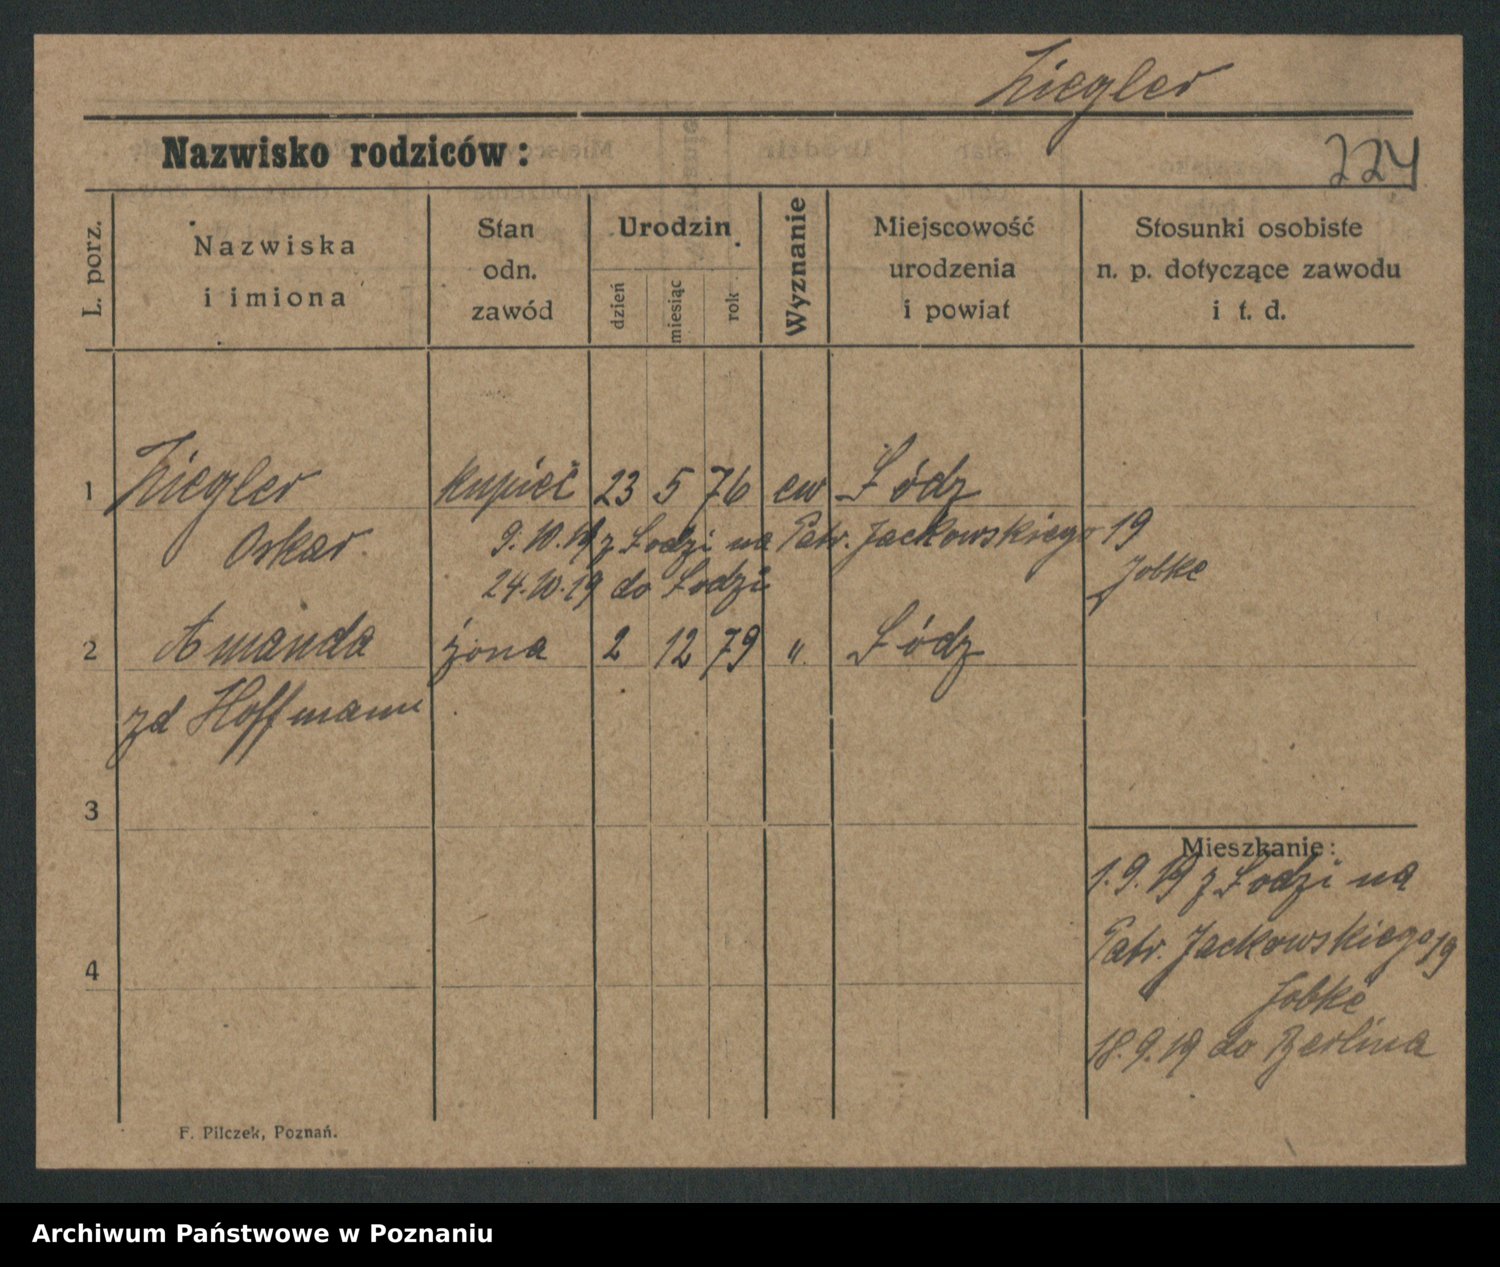 Ziegler
Nazwisko rodziców:
224
L. porz.
Nazwiska
i imiona
Stan
odn.
zawód
Urodzin
dzień
miesiąc
rok
Wyznanie
Miejscowość
urodzenia
i powiat
Stosunki osobiste
n. p. dotyczące zawodu
i t. d.
1 Ziegler kupiec 23 5 76 ew Łódz
Oskar 9.10.19 z Łodzi na Patr. Jackowskiego 19
Jobke
24.10.19 do Łodzi
2 Amanda żona 2 12 79 " Łódz
zd Hoffmann
3
Mieszkanie:
1.9.19 z Łodzi na
Patr. Jackowskiego 19
4
Jobke
18.9.19 do Berlina
F. Pilczek, Poznań.
Archiwum Państwowe w Poznaniu